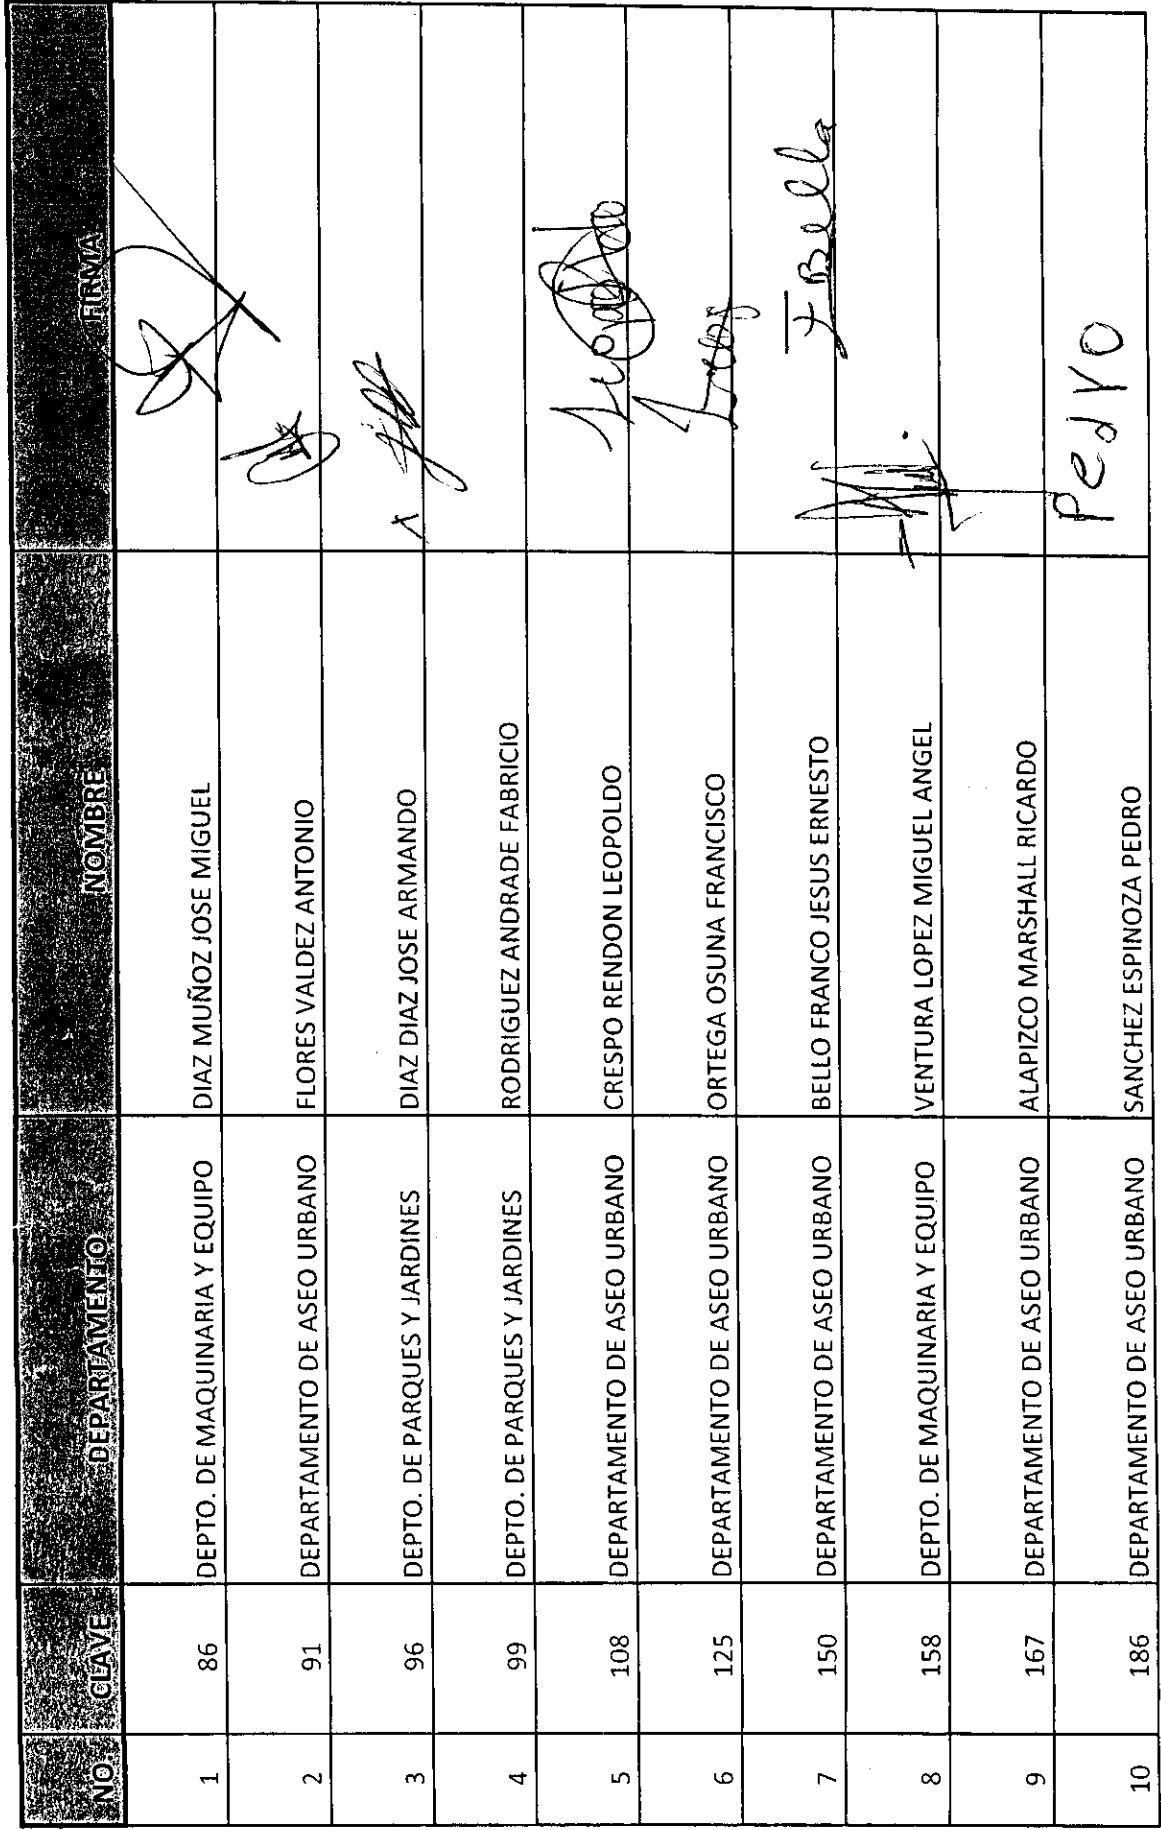 NO. CLAVE DEPARTAMENTO NOMBRE FIRMA
1 86 DEPTO. DE MAQUINARIA Y EQUIPO DIAZ MUÑOZ JOSE MIGUEL
2 91 DEPARTAMENTO DE ASEO URBANO FLORES VALDEZ ANTONIO
3 96 DEPTO. DE PARQUES Y JARDINES DIAZ DIAZ JOSE ARMANDO
4 99 DEPTO. DE PARQUES Y JARDINES RODRIGUEZ ANDRADE FABRICIO
5 108 DEPARTAMENTO DE ASEO URBANO CRESPO RENDON LEOPOLDO
6 125 DEPARTAMENTO DE ASEO URBANO ORTEGA OSUNA FRANCISCO
7 150 DEPARTAMENTO DE ASEO URBANO BELLO FRANCO JESUS ERNESTO
8 158 DEPTO. DE MAQUINARIA Y EQUIPO VENTURA LOPEZ MIGUEL ANGEL
9 167 DEPARTAMENTO DE ASEO URBANO ALAPIZCO MARSHALL RICARDO
10 186 DEPARTAMENTO DE ASEO URBANO SANCHEZ ESPINOZA PEDRO Pedro